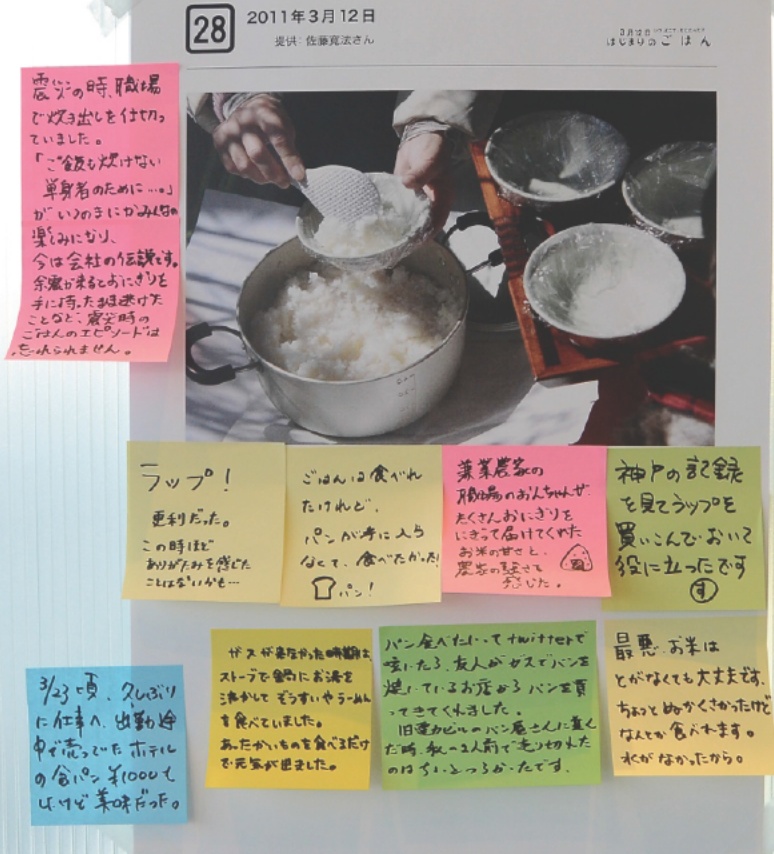 28
2011年3月12日
提供: 佐藤寛法さん
3月12日
はじまりのごはん
震災の時、職場
で炊き出しを仕切っ
ていました。
「ご飯も炊けない
単身者のために…。」
がいつのまにかみんなの
楽しみになり、
今は会社の伝説です。
余震が来るとおにぎりを
手に持ったまま逃げた
ことなど、震災時の
ごはんのエピソードは
忘れられません。
ラップ!
便利だった。
この時ほど
ありがたみを感じた
ことはないかも…
ごはんは食べれ
たけれど、
パンが手に入ら
なくて、食べたかった!
パン!
兼業農家の
職場のおんちゃんが
たくさんおにぎりを
にぎって届けてくれた
お米の甘さと、
農家の強さを
感じた。
神戸の記録
を見てラップを
買いこんでおいて
役に立ったです
す
3/23頃、久しぶり
に仕事へ、出勤途
中で売ってたホテル
の食パン ¥1000も
したけど美味だった。
ガスが来なかった時期は、
ストーブで鍋にお湯を
沸かしてぞうすいやラーメン
を食べていました。
あったかいものを食べるだけ
で元気が出ました。
パン食べたいってtwitterで
呟いたら、友人がガスでパンを
焼いているお店からパンを買
ってきてくれました。
旧運カビルのパン屋さんに並ん
だ時、私の2人前で売り切れた
のはちょっとつらかったです。
最悪、お米は
とがなくても大丈夫です、
ちょっとぬかくさかったけど
なんとか食べれます。
水がなかったから。